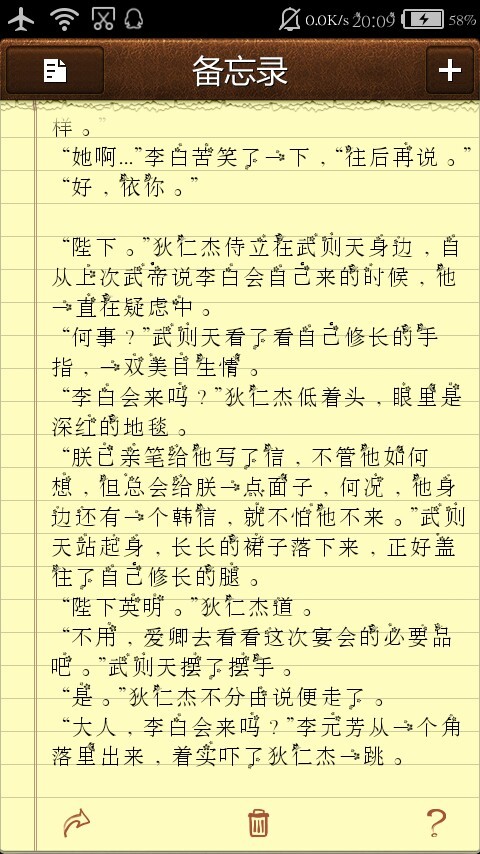 0.0K/s 20:09 58%
备忘录
样。”
“她啊...”李白苦笑了一下，“往后再说。”
“好，依你。”
“陛下。”狄仁杰侍立在武则天身边，自
从上次武帝说李白会自己来的时候，他
一直在疑虑中。
“何事？”武则天看了看自己修长的手
指，一双美目生情。
“李白会来吗？”狄仁杰低着头，眼里是
深红的地毯。
“朕已亲笔给他写了信，不管他如何
想，但总会给朕一点面子，何况，他身
边还有一个韩信，就不怕他不来。”武则
天站起身，长长的裙子落下来，正好盖
住了自己修长的腿。
“陛下英明。”狄仁杰道。
“不用，爱卿去看看这次宴会的必要品
吧。”武则天摆了摆手。
“是。”狄仁杰不分由说便走了。
“大人，李白会来吗？”李元芳从一个角
落里出来，着实吓了狄仁杰一跳。
?